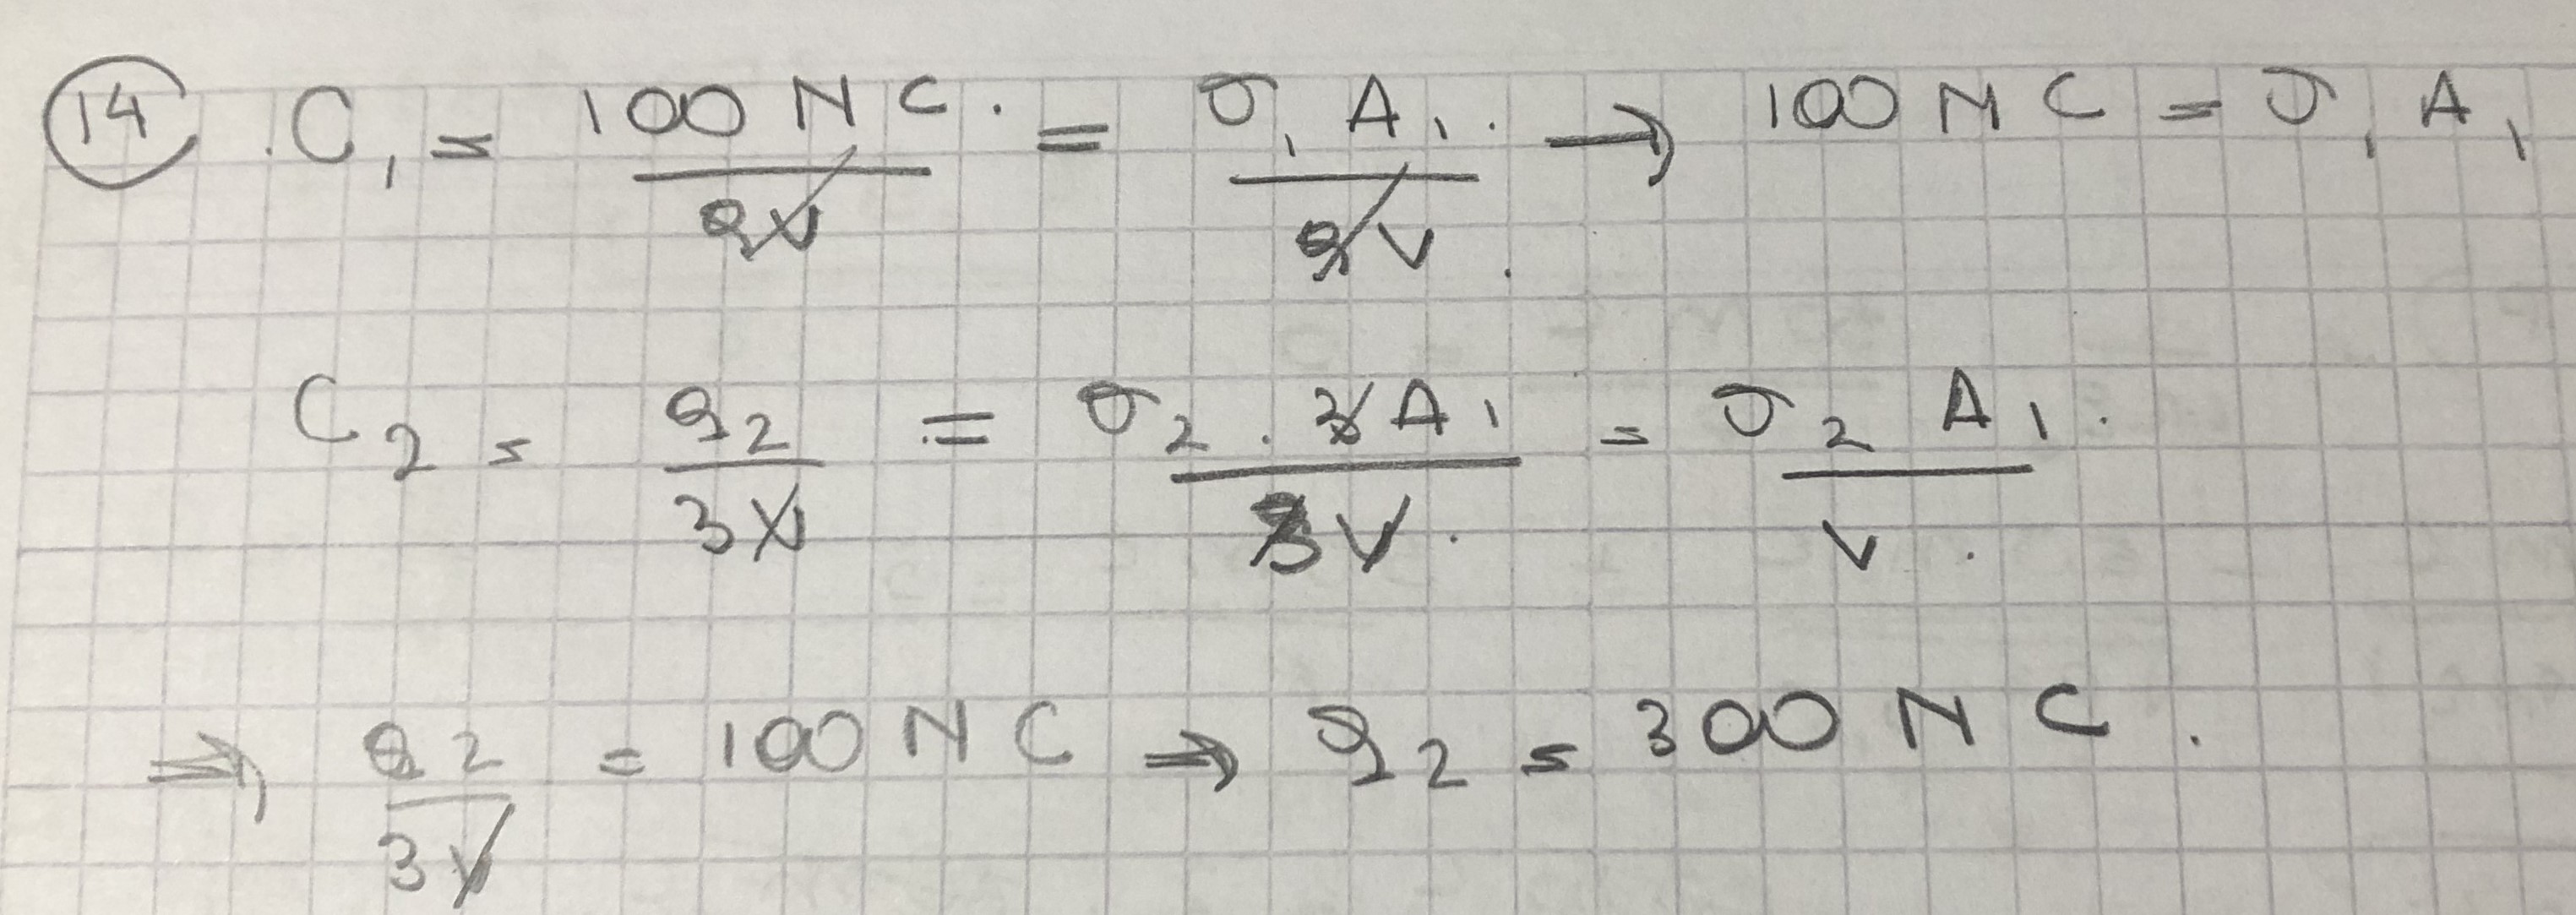 14 . C₁ = 100 NC. / 2V = σ₁ A₁. / 2V . → 100 NC = σ₁ A₁
C₂ = q₂ / 3V = σ₂ . 3A₁ / 3V . = σ₂ A₁ . / V .
⇒ q₂ / 3V = 100 NC ⇒ q₂ = 300 NC .